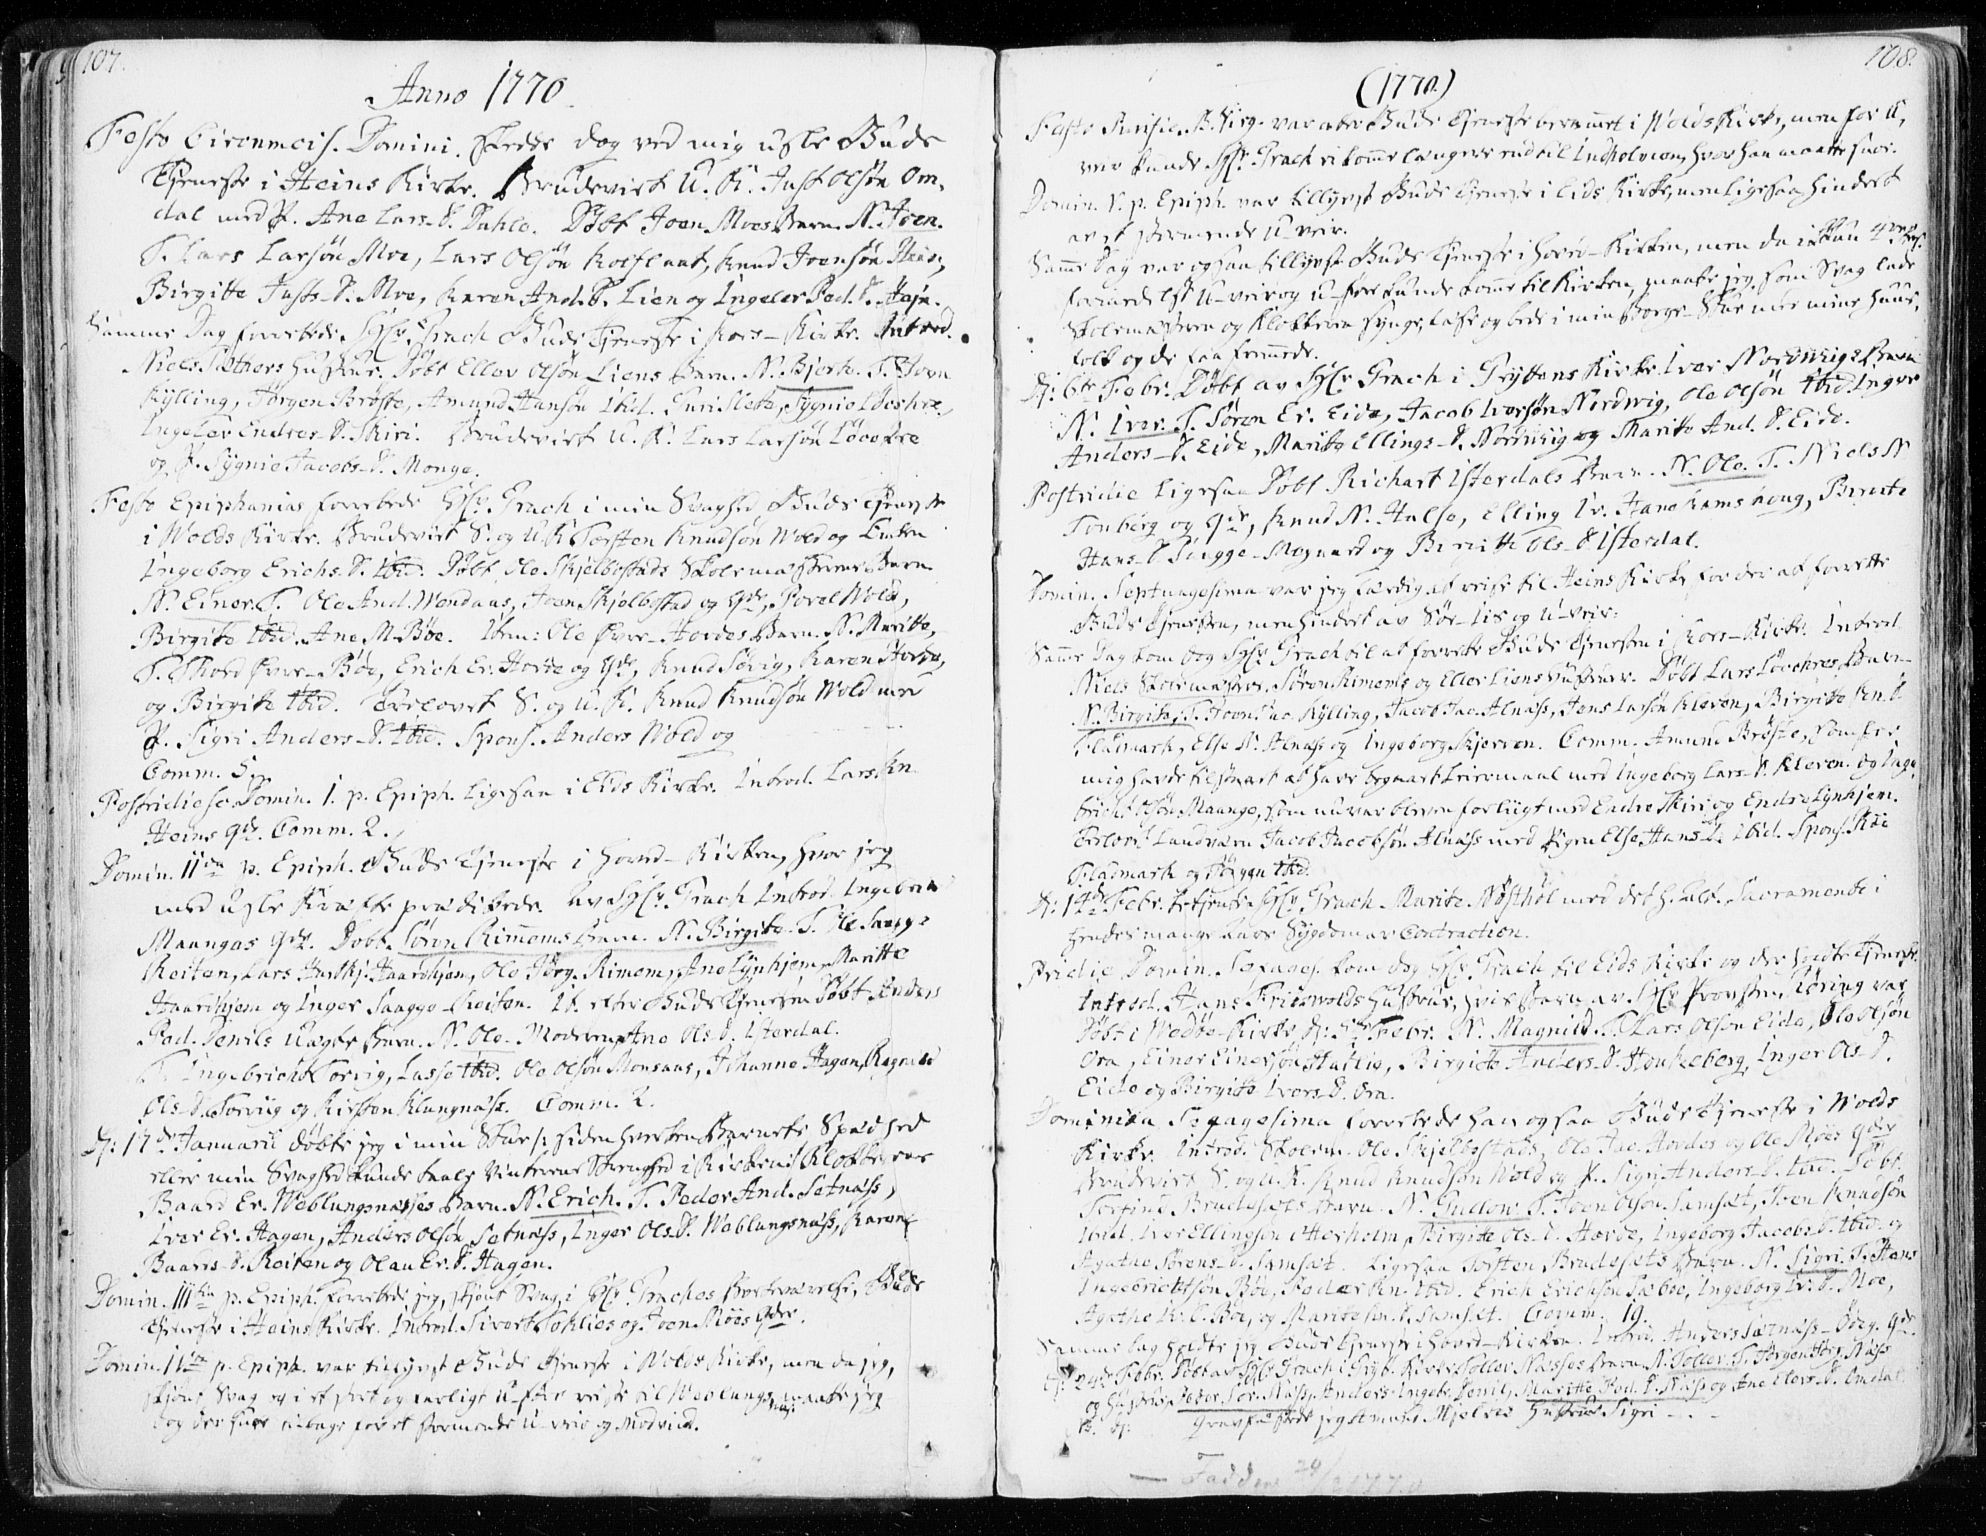 107.
Anno 1770.
Festo Circumcis. Domini. skedde dog ved mig usle Guds
Tjeneste i Heins Kirke. Brudeviet U. K. Just Olsøn Om-
dal med P. Ane Lars-D. Dahle. Døbt Joen Moes Barn. N. Joen.
T. Lars Larsøn Moe, Lars Olsøn Kolflaat, Knud Joensøn Hein,
Birgitte Justs-D. Moe, Karen And. D. Lien og Ingeler Ped. D.
Samme Dag forrettede Hr. Grach Guds Tjeneste i Kors-Kirke. Introd.
Niels Sæthers Hustrue. Døbt Eller Olsøn Liens Barn. N. Bjerth. T. Joen
Kylling, Jørgen Brøste, Amund Hansøn ibid. Guri Slette, Sygnie
Ingeler Endres-D. Skiri. Brudeviet U. K. Lars Larsøn
og P. Sygnie Jacobs-D. Monge.
Festo Epiphanias forrettede Hr. Grach i min Svaghed Guds Tjeneste
i Wolds Kirke. Brudeviet S. og U. K. Torsten Knudsøn Wold og Enken
Ingeborg Erichs-D. ibid. Døbt Ole Skjelbostads Skolemesterens Barn
N. Einer. T. Ole And. Wendaas, Joen Skjelbostad og Qde, Povel Wold,
Birgite ibid. Ane M. Bøe. Item: Ole Øvre-Hordes Barn. N. Maritte,
T. Thord Øvre-Bøe, Erich Er. Horde og Qde, Knud Søvig, Karen Horde,
og Birgite ibid. Trolovet S. og U. K. Knud Knudsøn Wold med
P. Sigri Anders-D. ibid. Spons. Anders Wold og
Comm. 5.
Postridie Domin. 1. p. Epiph. Ligesaa i Eids Kirke. Introd. Lars Kn.
Heins Qde. Comm. 2.
Domin. IIda p. Epiph. Guds Tjeneste i Hoved-Kirken, hvor jeg
med usle Kræfter prædikede. Av Hr. Grach Introd. Ingebr.
Maanges Qde. Døbt Søren Rimems Barn. N. Birgitte. T. Ole Saugge-
Reiten, Lars Haardhjem, Ole Jørg. Rimem, Ane Lynhjem, Maritte
Haardhjem og Inger Saugge-Reiten. It. efter Guds Tjenesten Døbt Anders
Ped. Venils uægte Barn. N. Ole. Moderen Ane Ols-D. Isterdal.
T. Ingebricht Torvig, Lasse ibid. Ole Olsøn Monsaas, Johanne Hagen, Ragnild
Ols-D. Torviig og Kirsten Klungnæss. Comm. 2.
D: 17de Januarii døbte jeg i min Stue /: siden hverken Barnets Spædhed
eller min Svaghed kunde taale Vinterens Strenghed i Kirken
Baard Er. Weblungsnæsses Barn. N. Erich. T. Peder And. Setnæss,
Iver Er. Hagen, Anders Olsøn Setnæss, Inger Ols-D. Weblungsnæss, Karen
Baards-D. Reiten og Olau Er. D. Hagen.
Domin. IIItia p. Epiph. forrettede jeg, skjønt Svag, i Hr. Graches Fraværelse, Guds
Tjeneste i Heins Kirke. Introd. Sivert Toklies og Joen Moes Qder.
Domin. IVta p. Epiph. var tillyst Guds Tjeneste i Wolds Kirke, men da jeg,
skjønt Svag og i et stort og farligt U-føre reiste til Weblungsnæs, maatte jeg
dog der fare tilbage for et stormende U-veir og Modvind.
108.
(1770.)
Festo Purific. B. Virg. var atter Guds Tjeneste berammet i Wolds Kirke, men for U-
veir kunde Hr. Grach ei komme længere end til Indholmen, hvor han maatte snue.
Domin. V. p. Epiph. var tillyst Guds Tjeneste i Eids Kirke, men ligesaa hindret
av et stormende U-veir.
Samme Dag var ogsaa tillyst Guds Tjeneste i Hoved-Kirken, men da ikkun 4re
formedelst U-veir og U-føre kunde komme til Kirken, maatte jeg som Svag lade
Skolemesteren og Klokkeren synge, læse og bede i min Borge-Stue med mine Huus-
folk og de faa fremmede.
D: 6te Febr. Døbt av Hr. Grach i Gryttens Kirke Iver Nordwigs Barn
N. Iver. T. Søren Er. Eide, Jacob Iversøn Nordwig, Ole Olsøn ibid. Inger
Anders-D. Eide, Marite Ellings-D. Nordwiig og Maritte And. D. Eide.
Postridie Ligesaa Døbt Richart Isterdals Barn. N. Ole. T. Niels N.
Tonberg og Qde, Knud N. Halse, Elling Iv. Hane Kamshoug, Berete
Hans-D. Sugge-Møgaard og Birgitte Ols-D. Isterdal.
Domin. Septuagesima var jeg færdig at reise til Heins Kirke, for der at forrette
Guds Tjenesten, men hindret av Sør-Iis og U-veir.
Samme Dag kom dog Hr. Grach til at forrette Guds Tjenesten i Kors-Kirke. Introd.
Niels Skolemesters, Søren Rimems og Eller Liens Hustruer. Døbt Lars Barn
N. Birgitte, T. Joen Jac. Kylling, Jacob Jac. Alnæss, Jens Larsøn Kleven, Birgitte Kn. D.
Fladmark, Else N. Alnæss og Ingeborg Skjerven. Comm. Amund Brøste, som for
mig havde tilstaaet at have begaaet Leiermaal med Ingeborg Lars-D. Kleven. og Inge-
bricht Olsøn Maange, som nu var bleven forliigt med Endre Skiri og Endre Lynhjem.
Trolovet Landværn Jacob Jacobsøn Alnæss med Pigen Else Hans D. ibid. Spons.
Fladmark og Jørgen ibid.
D: 14de Febr. betjente Hr. Grach Marite Nøsthol med det h. Alt. Sacramente i
hendes mange Aars Sygdom av Contraction.
Pridie Domin. Sexages. kom dog Hr. Grach til Eids Kirke og der holdte Tjeneste.
Introd. Hans Frisvolds Hustrue, hvis Barn av Hr. Provsten Røring var
døbt i Wedøe-Kirke d: 5te Febr. N. Magnild. T. Lars Olsøn Eide, Ole Olsøn
Ora, Einer Einersøn, Birgitte Anders-D. Honkeberg, Inger Ols-D.
Eide og Birgitte Ivers-D. Ora.
Dominica Sexagesima forrettede han ogsaa Guds Tjeneste i Wolds
Kirke. Introd. Skolem. Ole Skjelbostads, Ole Jac. Hordes og Ole Moes Qder
Brudeviet S. og U. K. Knud Knudsøn Wold og P. Sigri Anders-D. ibid. Døbt
Torfind Brudesæts Barn. N. Gudlow. T. Joen Olsøn Samsæt, Joen Knudsøn
ibid. Iver Ellingsen Otterholm, Birgitte Ols-D. Horde, Ingeborg Jacobs-D. ibid. og
Agathe Sørens-D. Samsæt. Ligesaa Torsten Brudesæts Barn. N. Sigri. T. Hans
Ingebrichtsøn Bøe, Peder Kn. ibid. Erich Erichsøn Sæboe, Ingeborg Er. D. Moe,
Agathe K. D. Bøe, og Marite D. Samsæt. Comm. 19.
Samme Dag holdte jeg Guds Tjeneste i Hoved-Kirken. Introd. Anders Sætnæss-Ødeg. Qde.
D: 24de Febr. døbt av Hr. Grach i Gryt. Kirke Toller Næsses Barn. N. Toller. T. Jørgen Næss
og Hustrue, Peder Tor. Næss, Anders Ingebr. Venil, Maritte Ped. D. Næss og Ane Elers-D. Omdal
D: Gravfæstede jeg Amund Mjelves Hustrue Sigri - - -
Faddere 24/2 1770